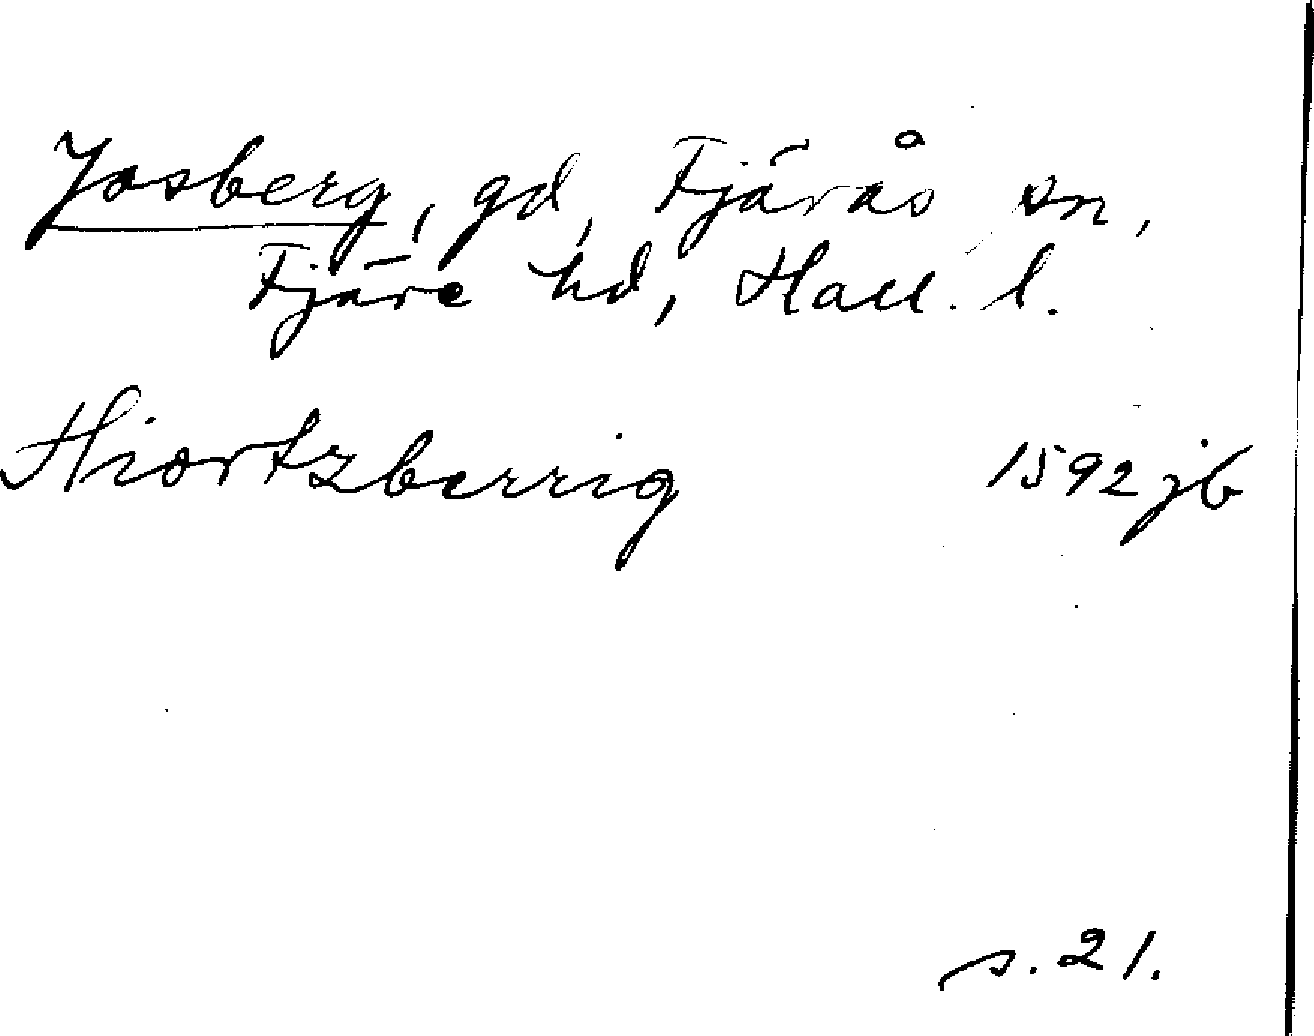 Josberg, gd, Fjärås sn,
Fjäre hd, Hall. l.
Hiortzberrig 1592 jb
s. 21.